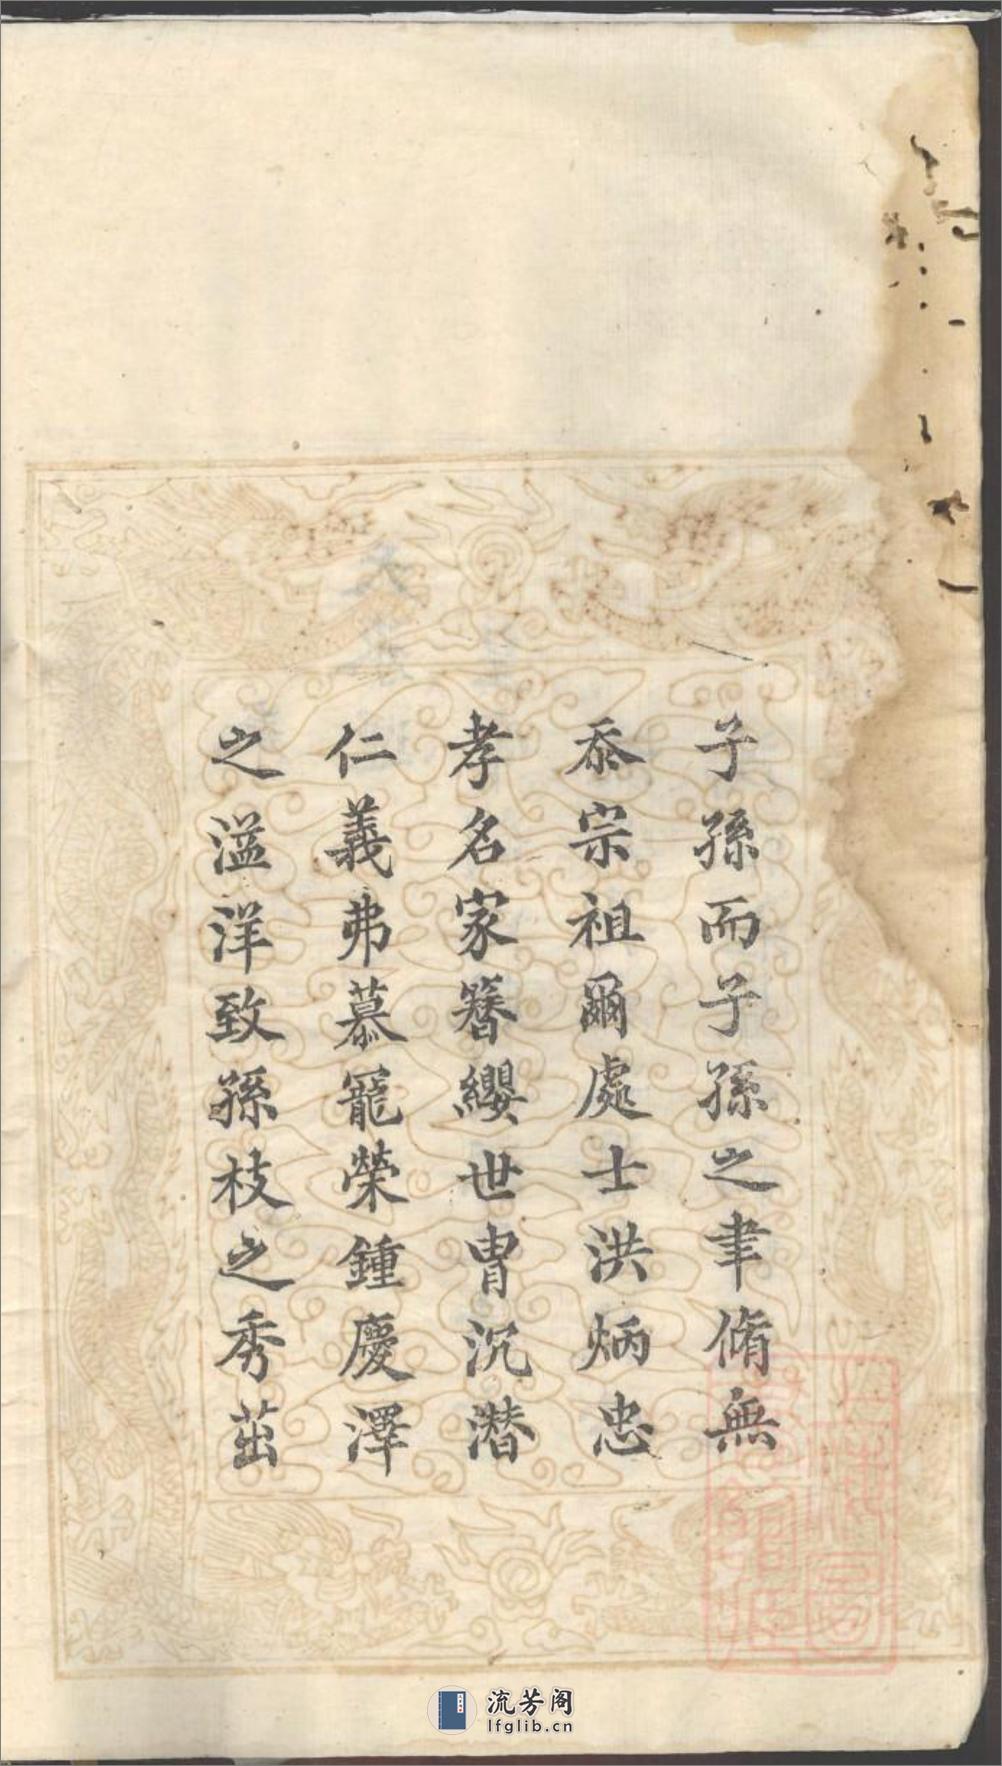 子孫而子孫之聿脩無
忝宗祖爾處士洪炳忠
孝名家簪纓世胄沉潛
仁義弗慕寵榮鍾慶澤
之溢洋致孫枝之秀茁
流芳阁
lfglib.cn